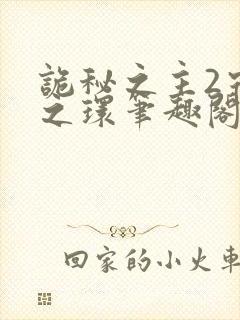 詭秘之主2
之環筆趣閣
回家的小火車